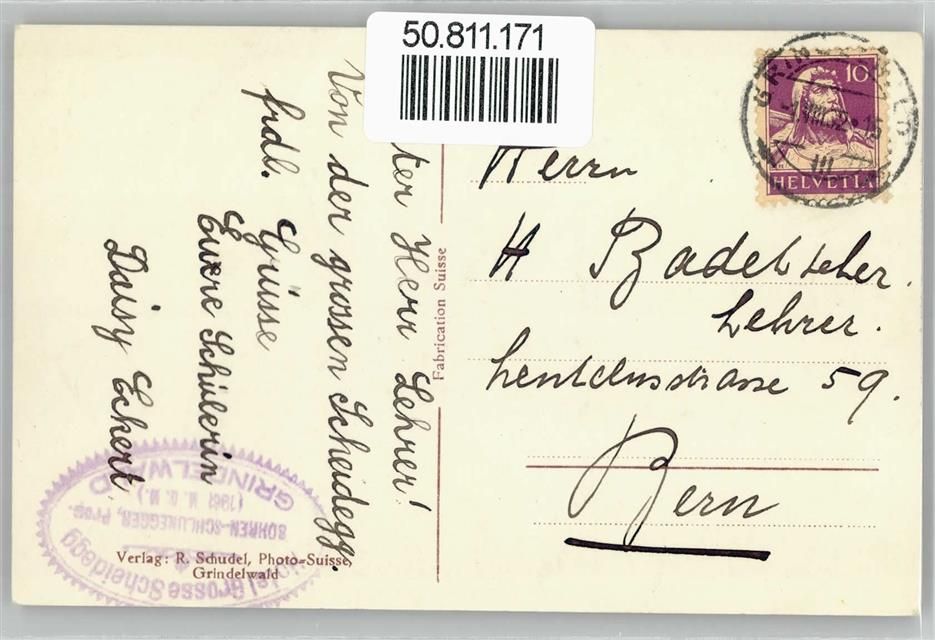 50.811.171
ter Herr Lehrer!
Von der grossen Scheidegg
frdl. Grüsse
Euere Schülerin
Daisy Eckert
Fabrication Suisse
Herrn
Lehrer.
59.
Bern
10
HELVETIA
Hotel Grosse Scheidegg
BOHREN-SCHLUNEGGER, Prop.
(1961 M. ü. M.)
GRINDELWALD
Verlag: R. Schudel, Photo-Suisse,
Grindelwald